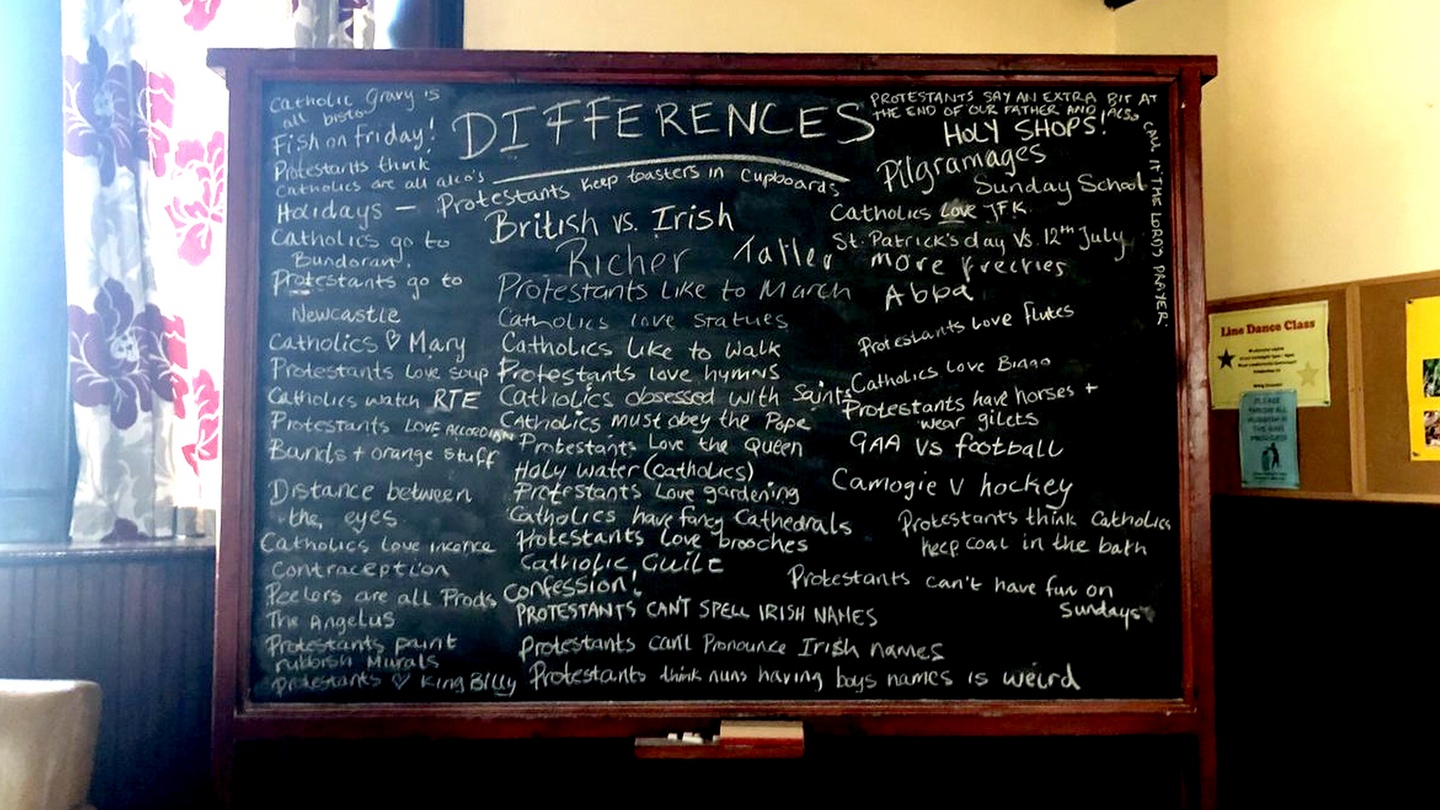 DIFFERENCES
Catholic Gravy is
all bisto
Fish on friday!
Protestants think
Catholics are all alco's
Holidays —
Catholics go to
Bundoran.
Protestants go to
Newcastle
Catholics ♡ Mary
Protestants Love soup
Catholics watch RTE
Protestants LOVE ACCORDIAN
Bands + orange stuff
Distance between
the eyes
Catholics Love incence
Contraception
Peelers are all Prods
The Angelus
Protestants paint
rubbish Murals
Protestants ♡ King Billy
Protestants keep toasters in Cupboards
British vs. Irish
Richer Taller
Protestants Like to March
Catholics love statues
Catholics like to walk
Protestants love hymns
Catholics obsessed with Saints
Catholics must obey the Pope
Protestants Love the Queen
Holy water (catholics)
Protestants Love gardening
Catholics have fancy Cathedrals
Protestants Love brooches
Catholic Guilt
Confession!
PROTESTANTS CAN'T SPELL IRISH NAMES
Protestants can't Pronounce Irish names
Protestants think nuns having boys names is weird
PROTESTANTS SAY AN EXTRA BIT AT
THE END OF OUR FATHER AND ALSO
CALL IT THE LORDS PRAYER.
HOLY SHOPS!
Pilgramages
Sunday School
Catholics Love JFK
St. Patrick's day Vs. 12th July
more freckles
Abba
Protestants Love flutes
Catholics Love Bingo
Protestants have horses +
wear gilets
GAA VS football
Camogie V hockey
Protestants think Catholics
keep coal in the bath
Protestants can't have fun on
Sundays
Line Dance Class
PLEASE